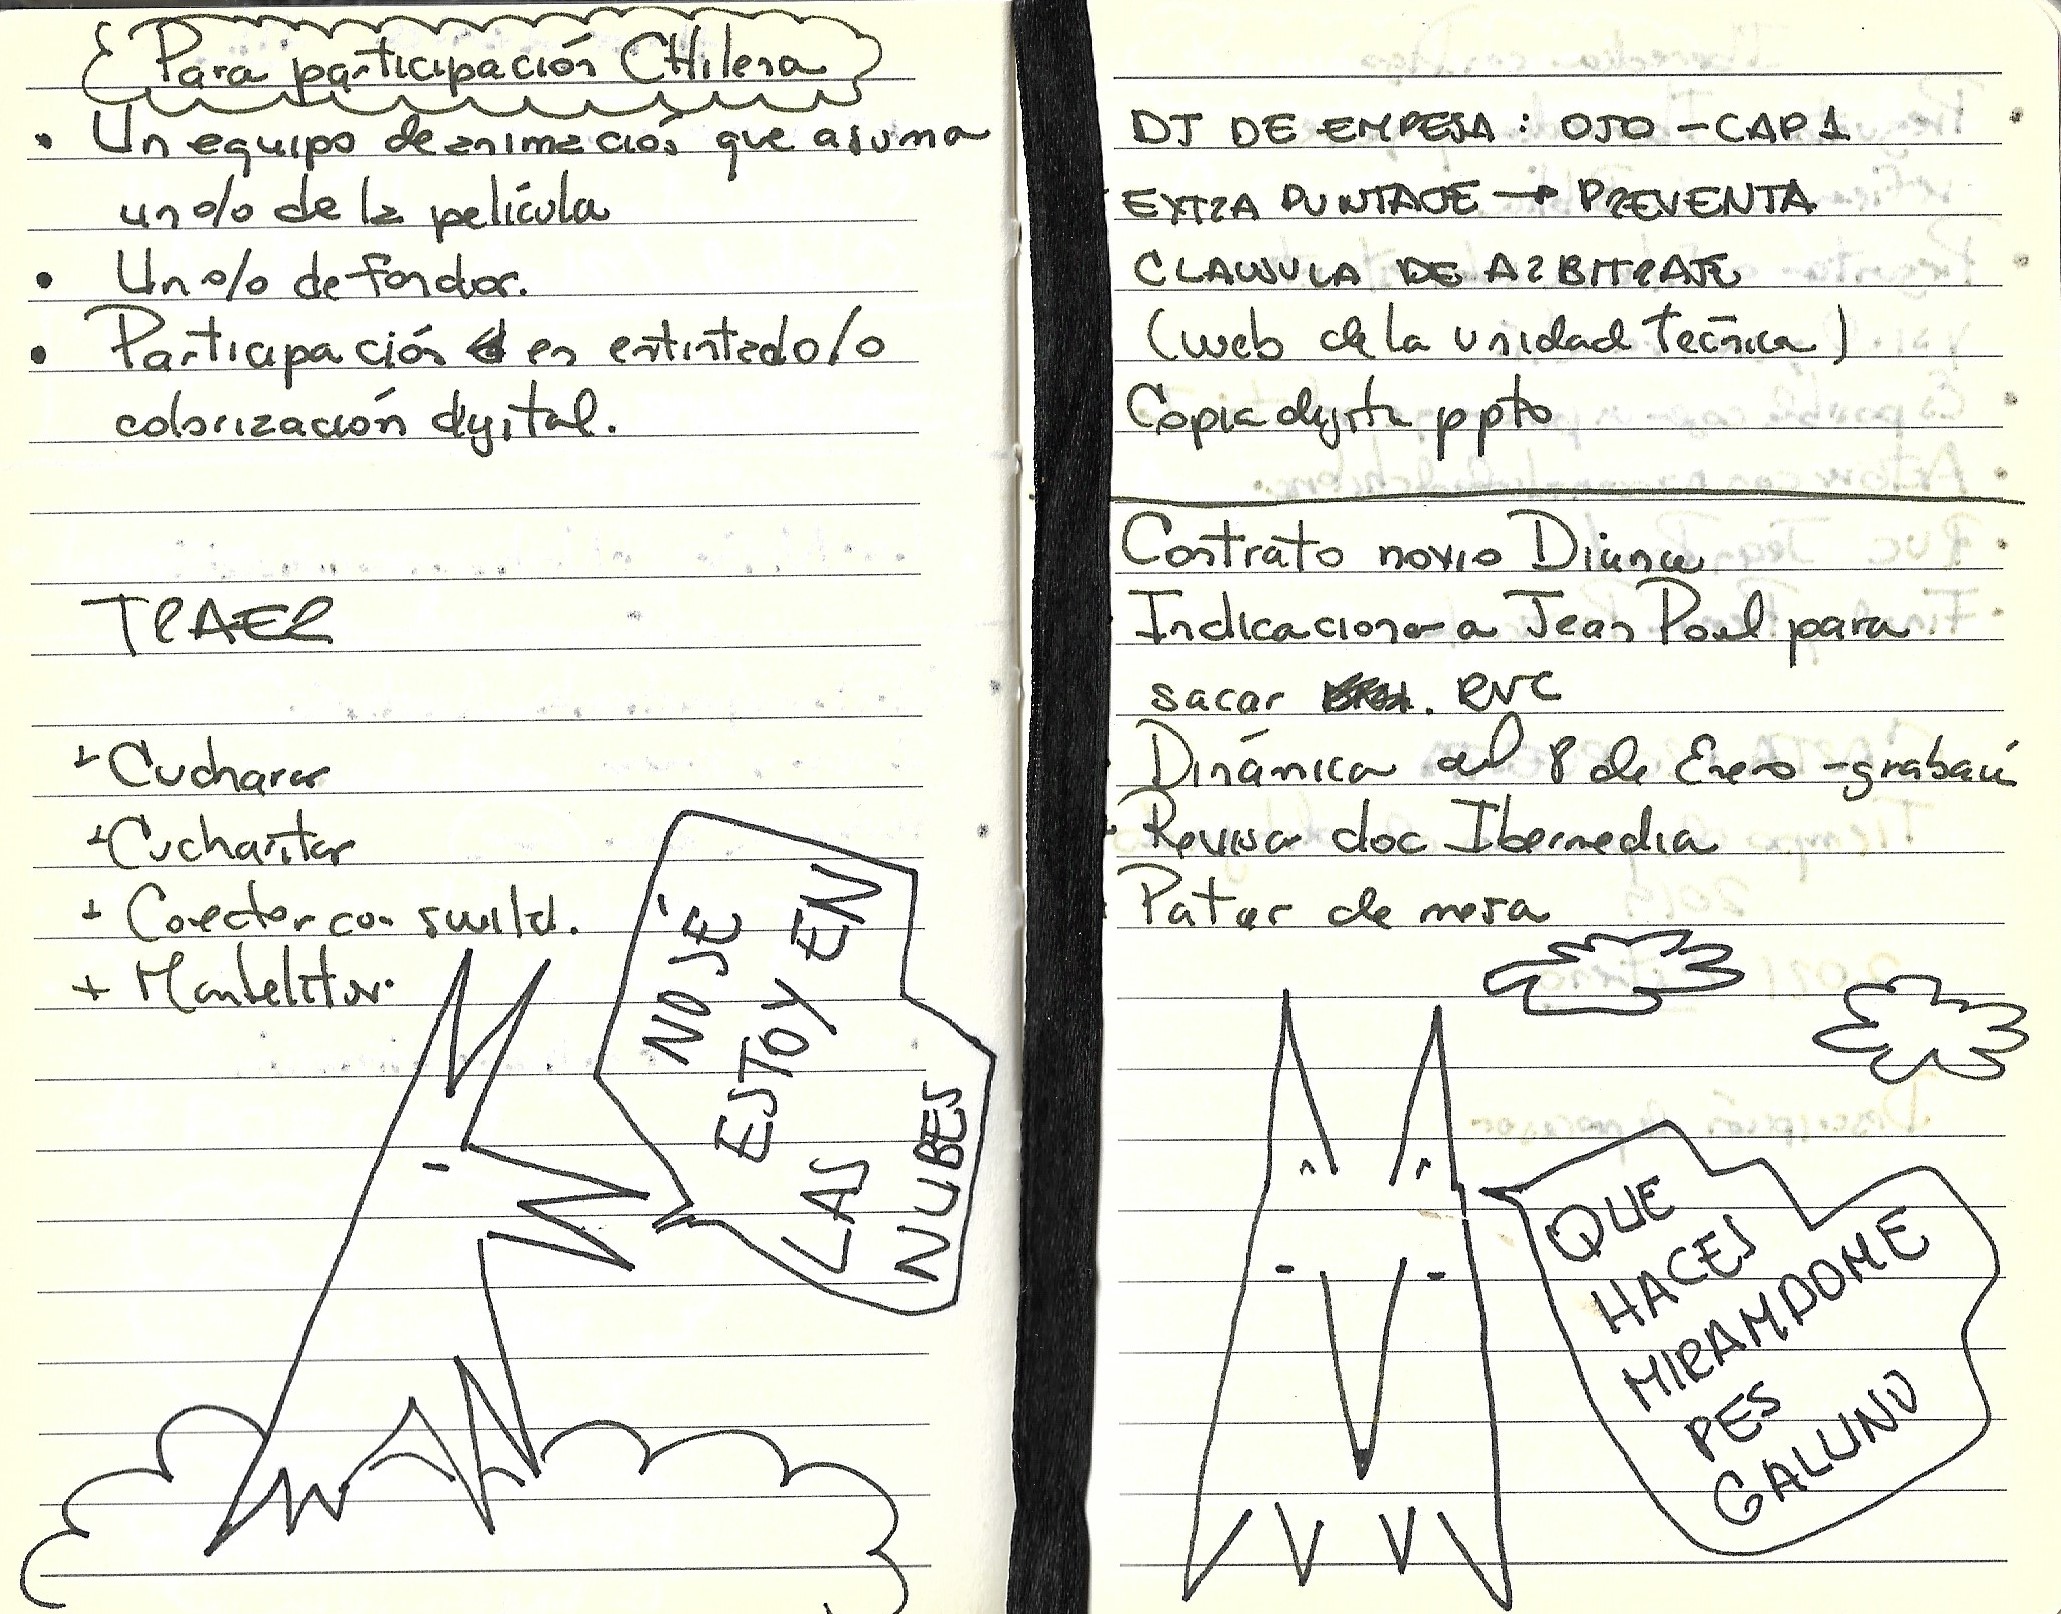 Para participación CHilena
• Un equipo de animación que asuma
un o/o de la película
• Un o/o de fondos.
• Participación en entintado o/o
colorización digital.
TRAER
+ Cucharas
+ Cucharitas
+ Conector con suild.
+ Mantelitos.
NO SÉ
ESTOY EN
LAS
NUBES
DJ DE EMPESA : OJO - CAP 1
EXTRA PUNTAJE → PREVENTA
CLAUSULA DE ARBITRAJE
(web de la unidad Técnica)
Copia digita ppto
Contrato novio Diana
Indicaciones a Jean Poul para
sacar RUC
Dinámica al 8 de Enero - grabaci
Revisar doc Ibermedia
Patas de mesa
QUE
HACES
MIRAMDOME
PES
GALLINO